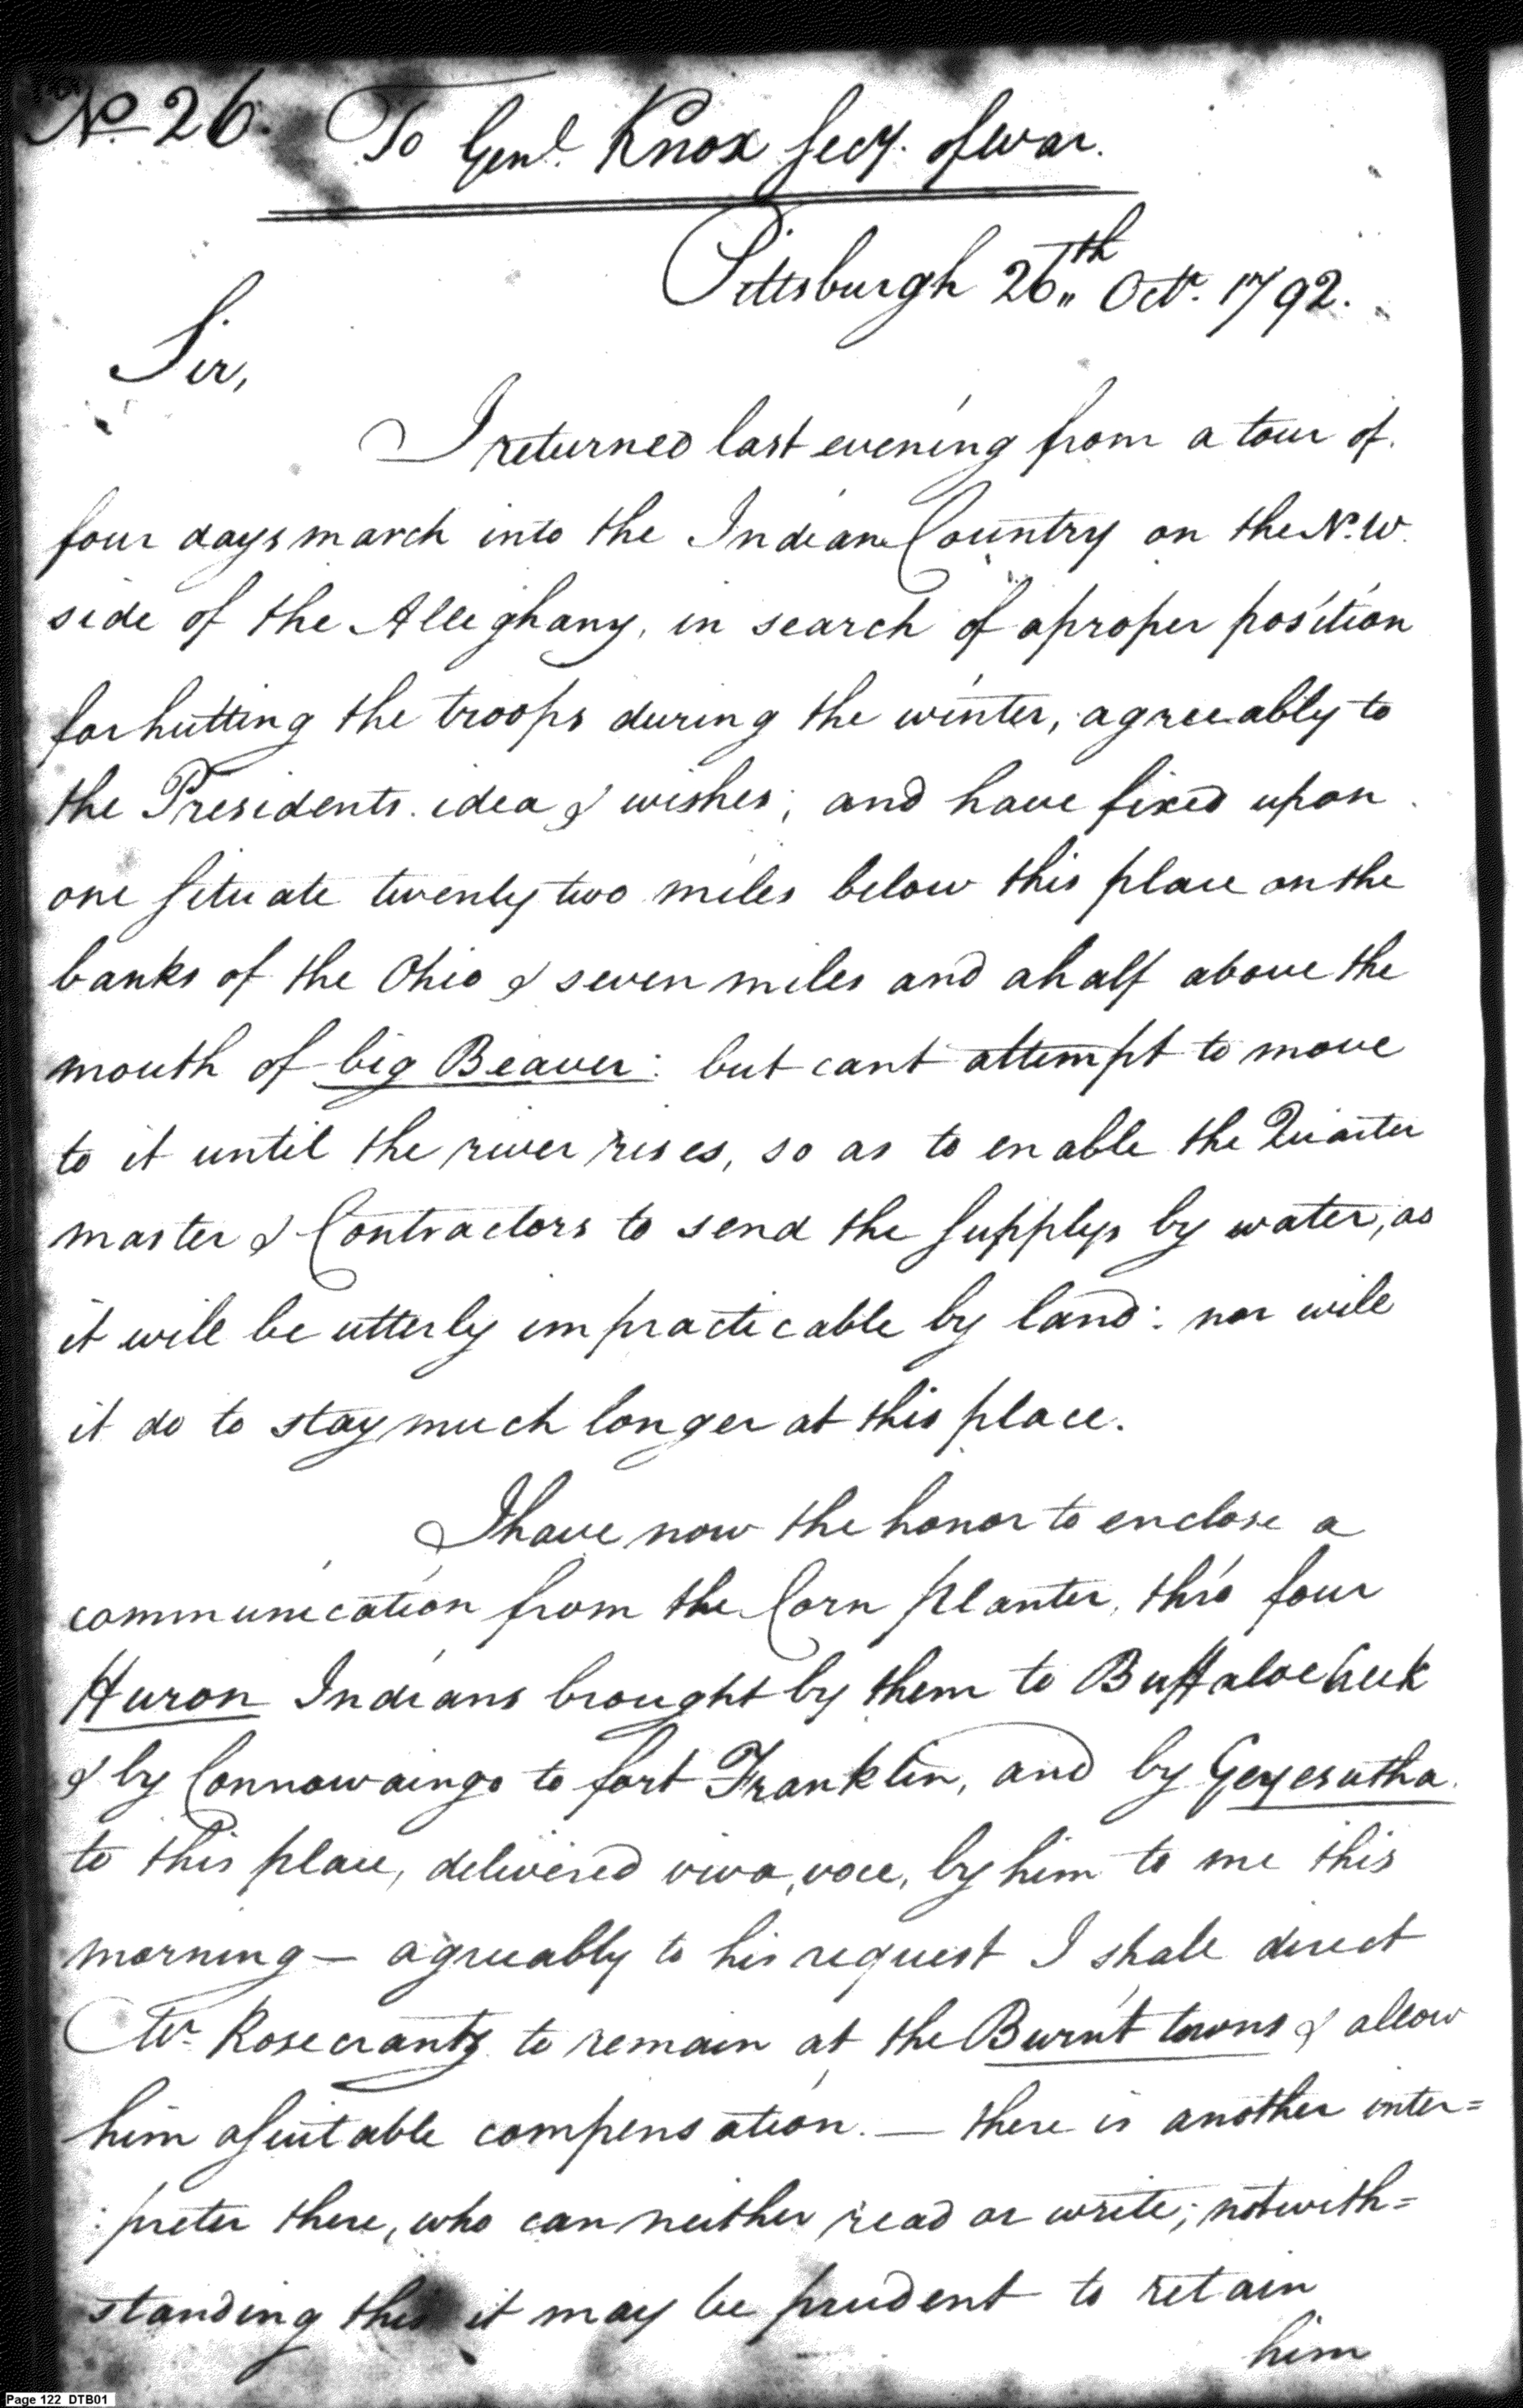 No. 26. To Genl. Knox Secy. of War.
Pittsburgh 26th Octr. 1792.
Sir,
I returned last evening from a tour of
four days march into the Indian Country on the N.W.
side of the Alleghany, in search of a proper position
for hutting the troops during the winter, agreeably to
the Presidents idea & wishes; and have fixed upon
one situate twenty two miles below this place on the
banks of the Ohio & seven miles and a half above the
mouth of big Beaver: but cant attempt to move
to it until the river rises, so as to enable the Quarter
master & Contractors to send the supplys by water, as
it will be utterly impracticable by land: nor will
it do to stay much longer at this place.
I have now the honor to enclose a
communication from the Corn planter, thro' four
Huron Indians brought by them to Buffaloe Creek
& by Connowaingo to fort Franklin, and by Geyesutha
to this place, delivered viva, voce, by him to me this
morning — agreeably to his request I shall direct
Mr. Rosecrantz to remain at the Burn't towns & allow
him a suitable compensation. — there is another inter=
:preter there, who can neither read or write; notwith=
standing this it may be prudent to retain
him
Page 122 DTB01